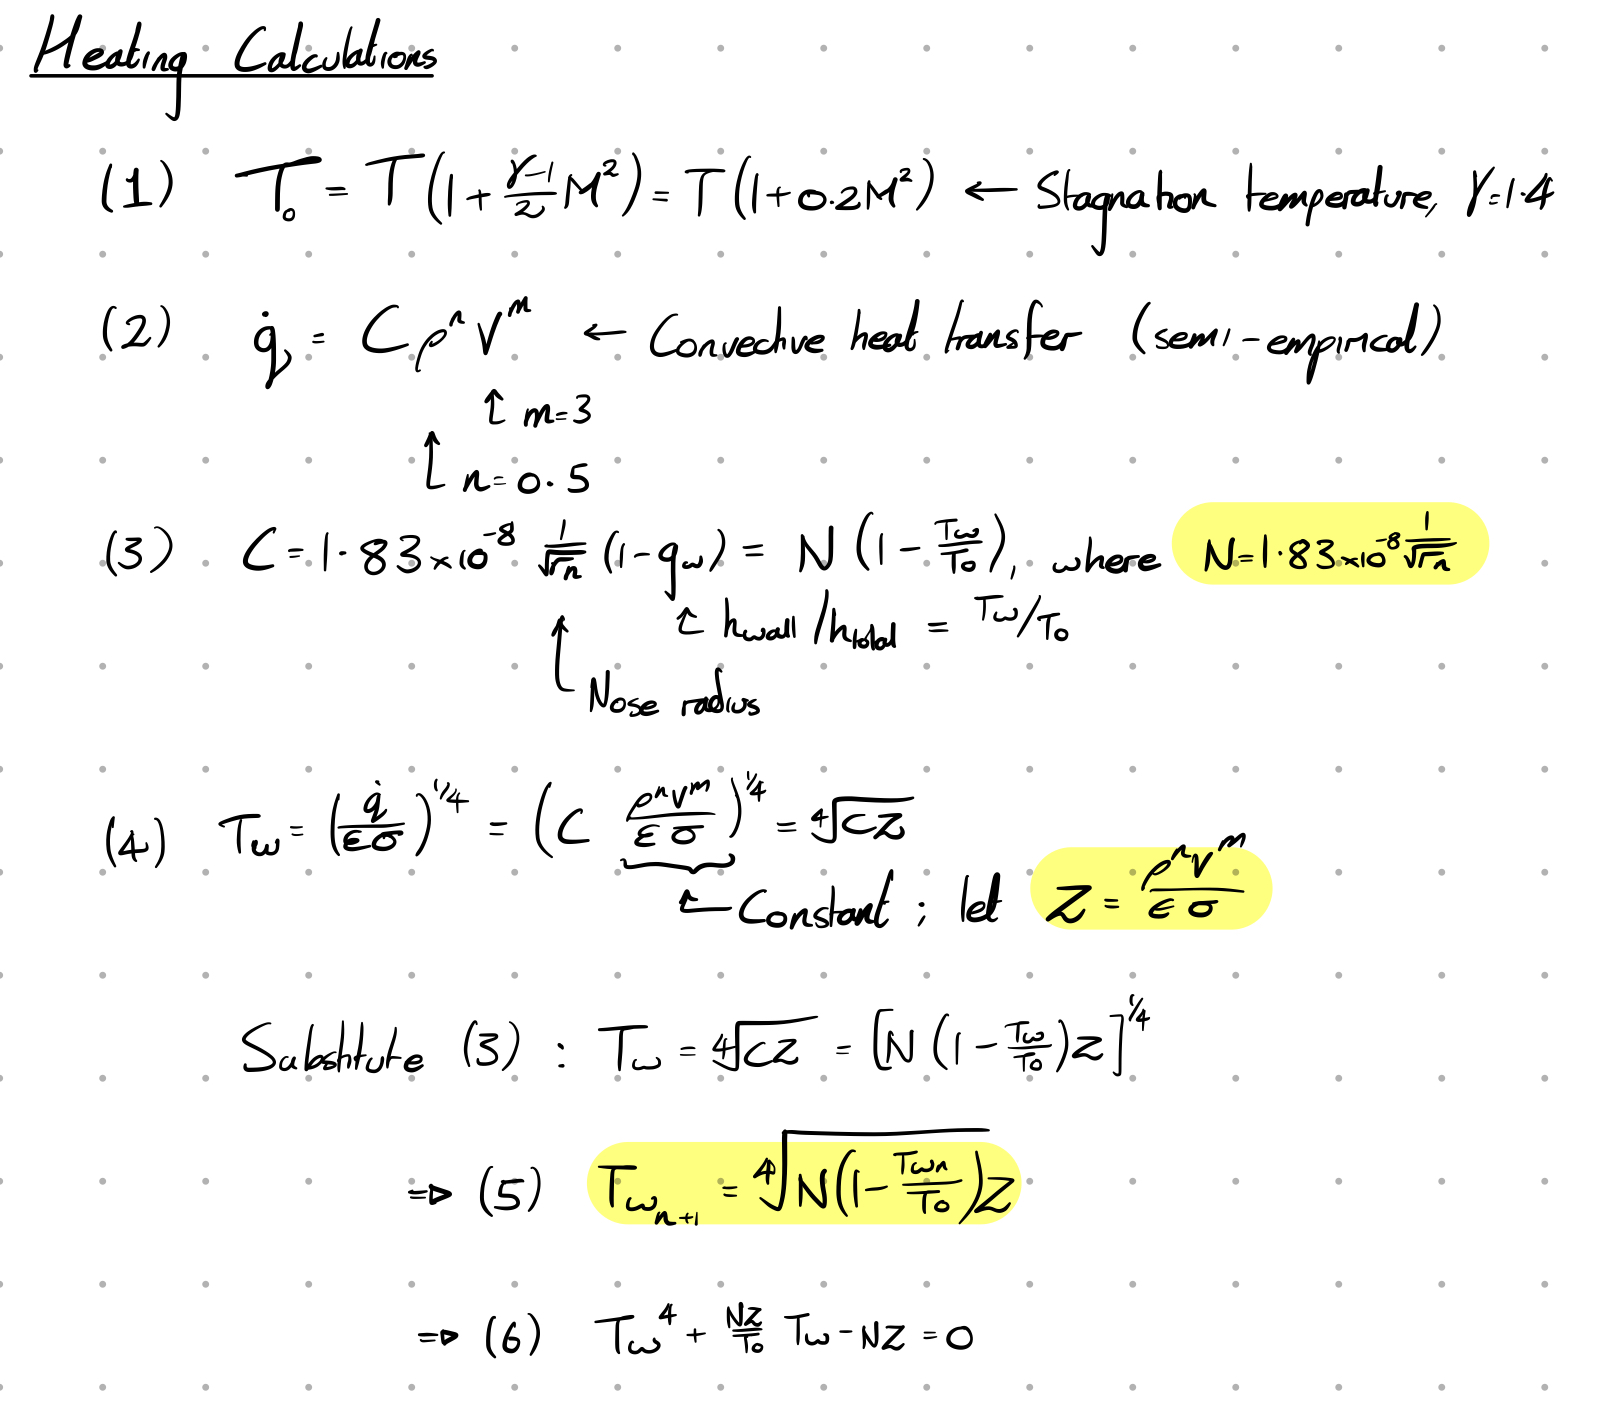 Heating Calculations
(1) T₀ = T(1 + (γ-1)/2 M²) = T(1+0.2M²) ← Stagnation temperature, γ=1.4
(2) q̇ = C ρⁿ Vᵐ ← Convective heat transfer (semi-empirical)
↑ m=3
↑ n=0.5
(3) C = 1.83×10⁻⁸ 1/√rₙ (1-g_w) = N(1 - T_w/T₀), where N=1.83×10⁻⁸ 1/√rₙ
↑ h_wall/h_total = T_w/T₀
↑ Nose radius
(4) T_w = (q̇/εσ)^¼ = (C ρⁿVᵐ/εσ)^¼ = ∜CZ
↑ Constant ; let Z = ρⁿVᵐ/εσ
Substitute (3) : T_w = ∜CZ = [N(1 - T_w/T₀)Z]^¼
⇒ (5) T_w_n+1 = ∜N(1 - T_wn/T₀)Z
⇒ (6) T_w⁴ + NZ/T₀ T_w - NZ = 0